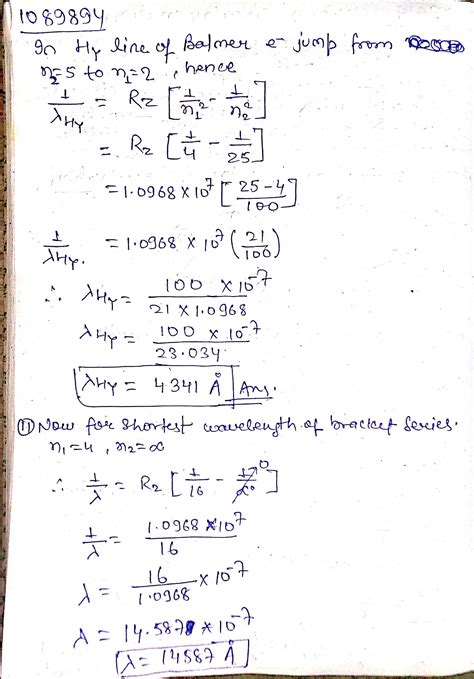 1089894
In Hγ line of Balmer e- jump from
n2=5 to n1=2 , hence
1/λHγ = RZ [1/n1² - 1/n2²]
= RZ [1/4 - 1/25]
= 1.0968 X 10^7 [25-4/100]
1/λHγ. = 1.0968 X 10^7 (21/100)
∴ λHγ = 100 X 10^-7 / 21 X 1.0968
λHγ = 100 X 10^-7 / 23.034
λHγ = 4341 Å Ans.
(11) Now for Shortest wavelength of bracket Series.
n1=4 , n2=∝
∴ 1/λ = RZ [1/16 - 1/∝ 0]
1/λ = 1.0968 X 10^7 / 16
λ = 16/1.0968 X 10^-7
λ = 14.587 X 10^-7
λ = 14587 Å